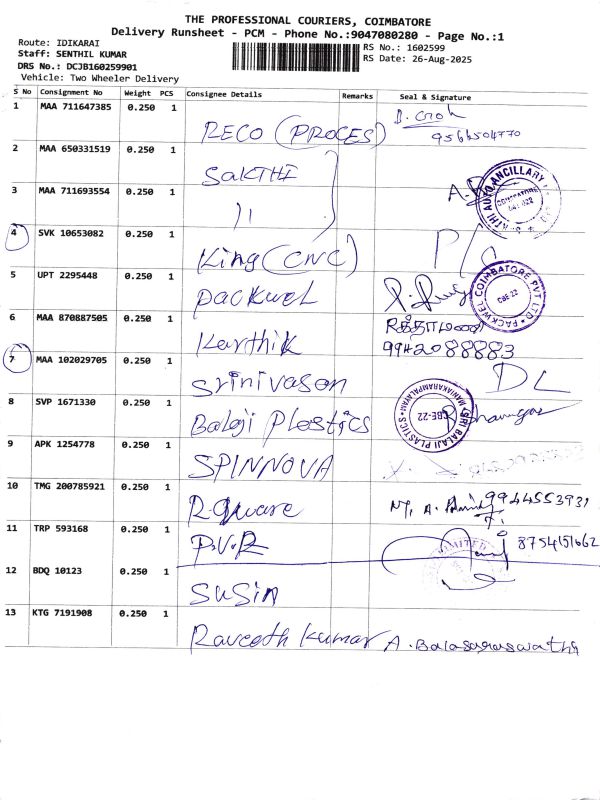 THE PROFESSIONAL COURIERS, COIMBATORE
Delivery Runsheet - PCM - Phone No.:9047080280 - Page No.:1
Route: IDIKARAI
Staff: SENTHIL KUMAR
DRS No.: DCJB160259901
Vehicle: Two Wheeler Delivery
RS No.: 1602599
RS Date: 26-Aug-2025
S No Consignment No Weight PCS Consignee Details Remarks Seal & Signature
1 MAA 711647385 0.250 1 RECO (PROCES)
9566504770
2 MAA 650331519 0.250 1 SAKTHI
3 MAA 711693554 0.250 1 ))
4 SVK 10653082 0.250 1 King (CNC)
5 UPT 2295448 0.250 1 packwel
PACKWEL COIMBATORE PVT LTD
CBE-22
6 MAA 870887505 0.250 1 Karthik
9942088883
7 MAA 102029705 0.250 1 Srinivason DL
8 SVP 1671330 0.250 1 Balaji Plastics
SRI BALAJI PLASTICS
MANIAKARAMPALAYAM
CBE-22
9 APK 1254778 0.250 1 SPINNOVA
10 TMG 200785921 0.250 1 9944553931
11 TRP 593168 0.250 1 P.V.R 8754151662
12 BDQ 10123 0.250 1 SUSIN
13 KTG 7191908 0.250 1 Raveeth kumar A. Balasaraswathi